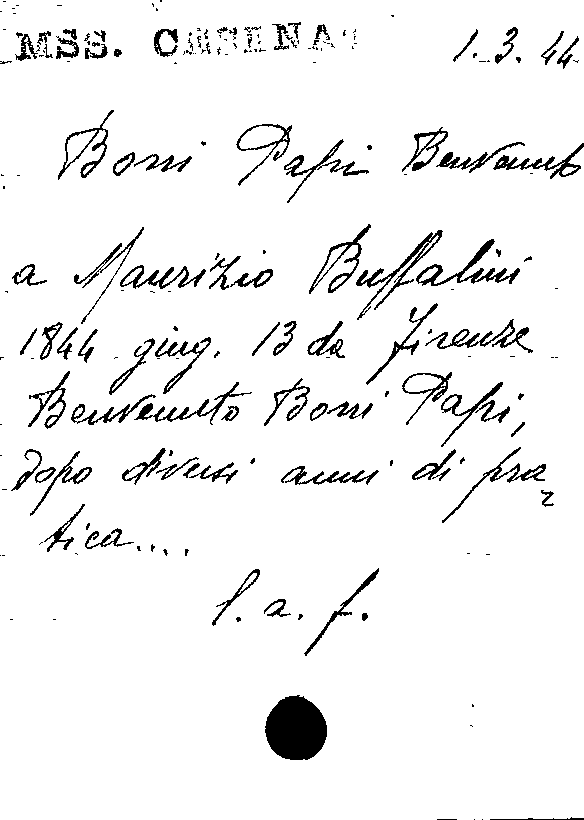 MSS. CESENA
1.3.44
Borri Papi Benvenuto
a Maurizio Buffalini
1844 giug. 13 da Firenze
Benvenuto Borri Papi,
dopo diversi anni di pra
tica....
l. a. f.